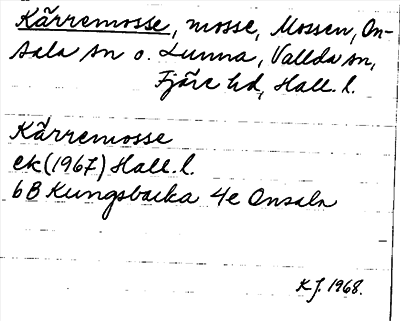 Kärremosse, mosse, Mossen, On-
sala sn o. Lunna, Vallda sn,
Fjäre hd, Hall. l.
Kärremosse
ek (1967) Hall. l.
6B Kungsbacka 4e Onsala
KJ. 1968.